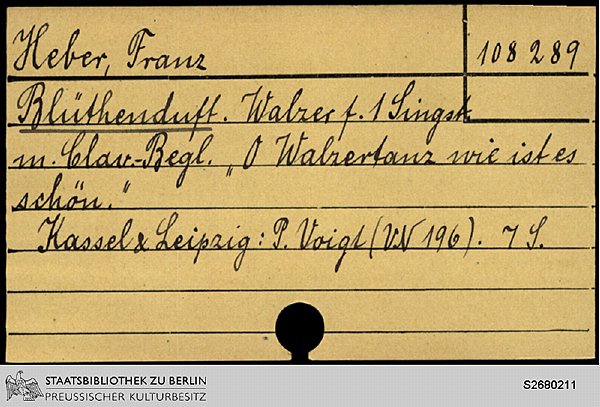 Heber, Franz
108 289
Blüthenduft. Walzer f. 1 Singst.
m. Clav.-Begl. „O Walzertanz wie ist es
schön."
Kassel & Leipzig: P. Voigt (VN 196). 7 S.
STAATSBIBLIOTHEK ZU BERLIN
PREUSSISCHER KULTURBESITZ
S2680211